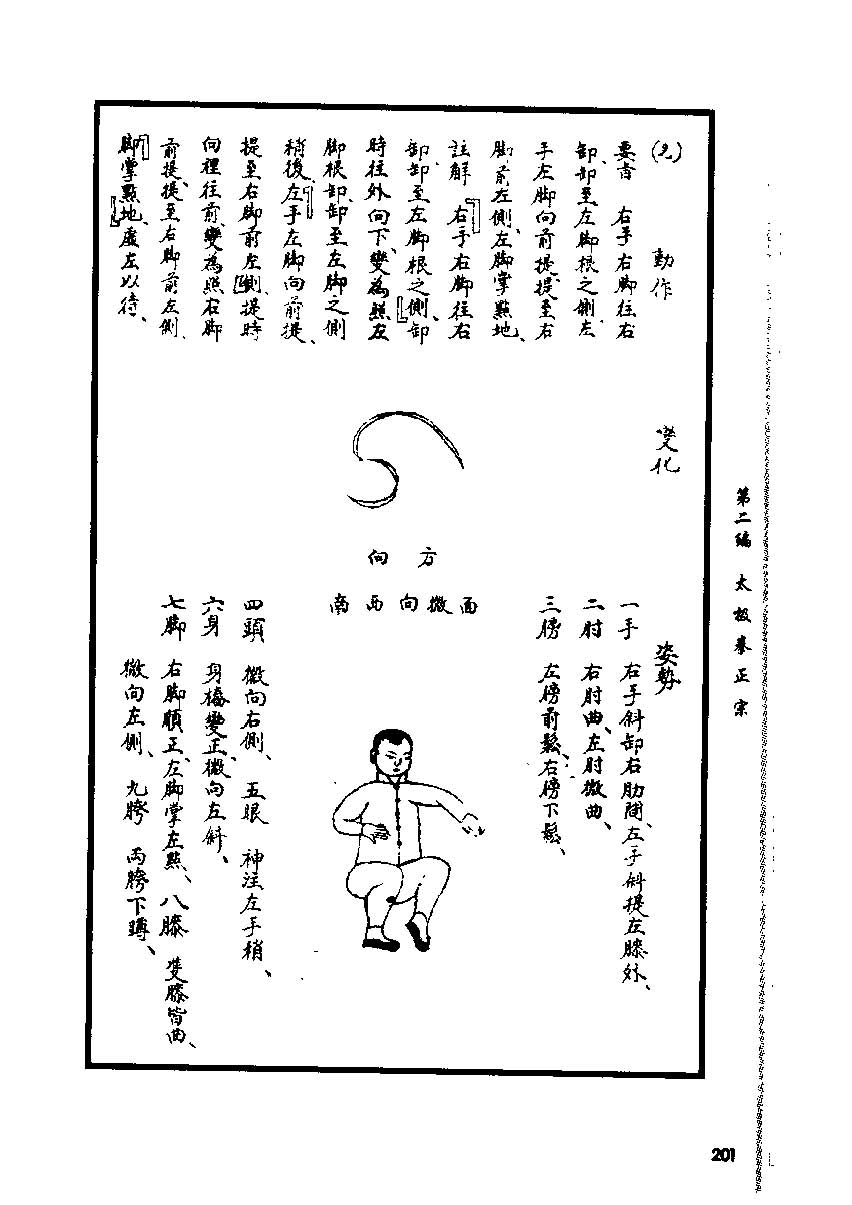 動作
要言　右手右脚往右
卸、卸至左脚根之側、左
手左脚向前提、提至右
脚前左側、左脚掌點地、
註解　右手右脚往右
卸、卸至左脚根之側、卸
時往外向下、變為照左
脚根卸、卸至左脚之側
稍後、左手左脚向前提、
提至右脚前左側、提時
向裡往前、變為照右脚
前提、提至右脚前左側、
脚掌點地、虛左以待、
變化
方向
面微向西南
姿勢
一手　右手斜卸右肋間、左手斜提左膝外、
二肘　右肘曲、左肘微曲、
三膀　左膀前鬆、右膀下鬆、
四頭　微向右側、　五眼　神注左手梢、
六身　身樁變正、微向左斜、
七脚　右脚順正、左脚掌左點、　八膝　雙膝皆曲、
微向左側、　九胯　両胯下蹲、
第二編　太极拳正宗
201